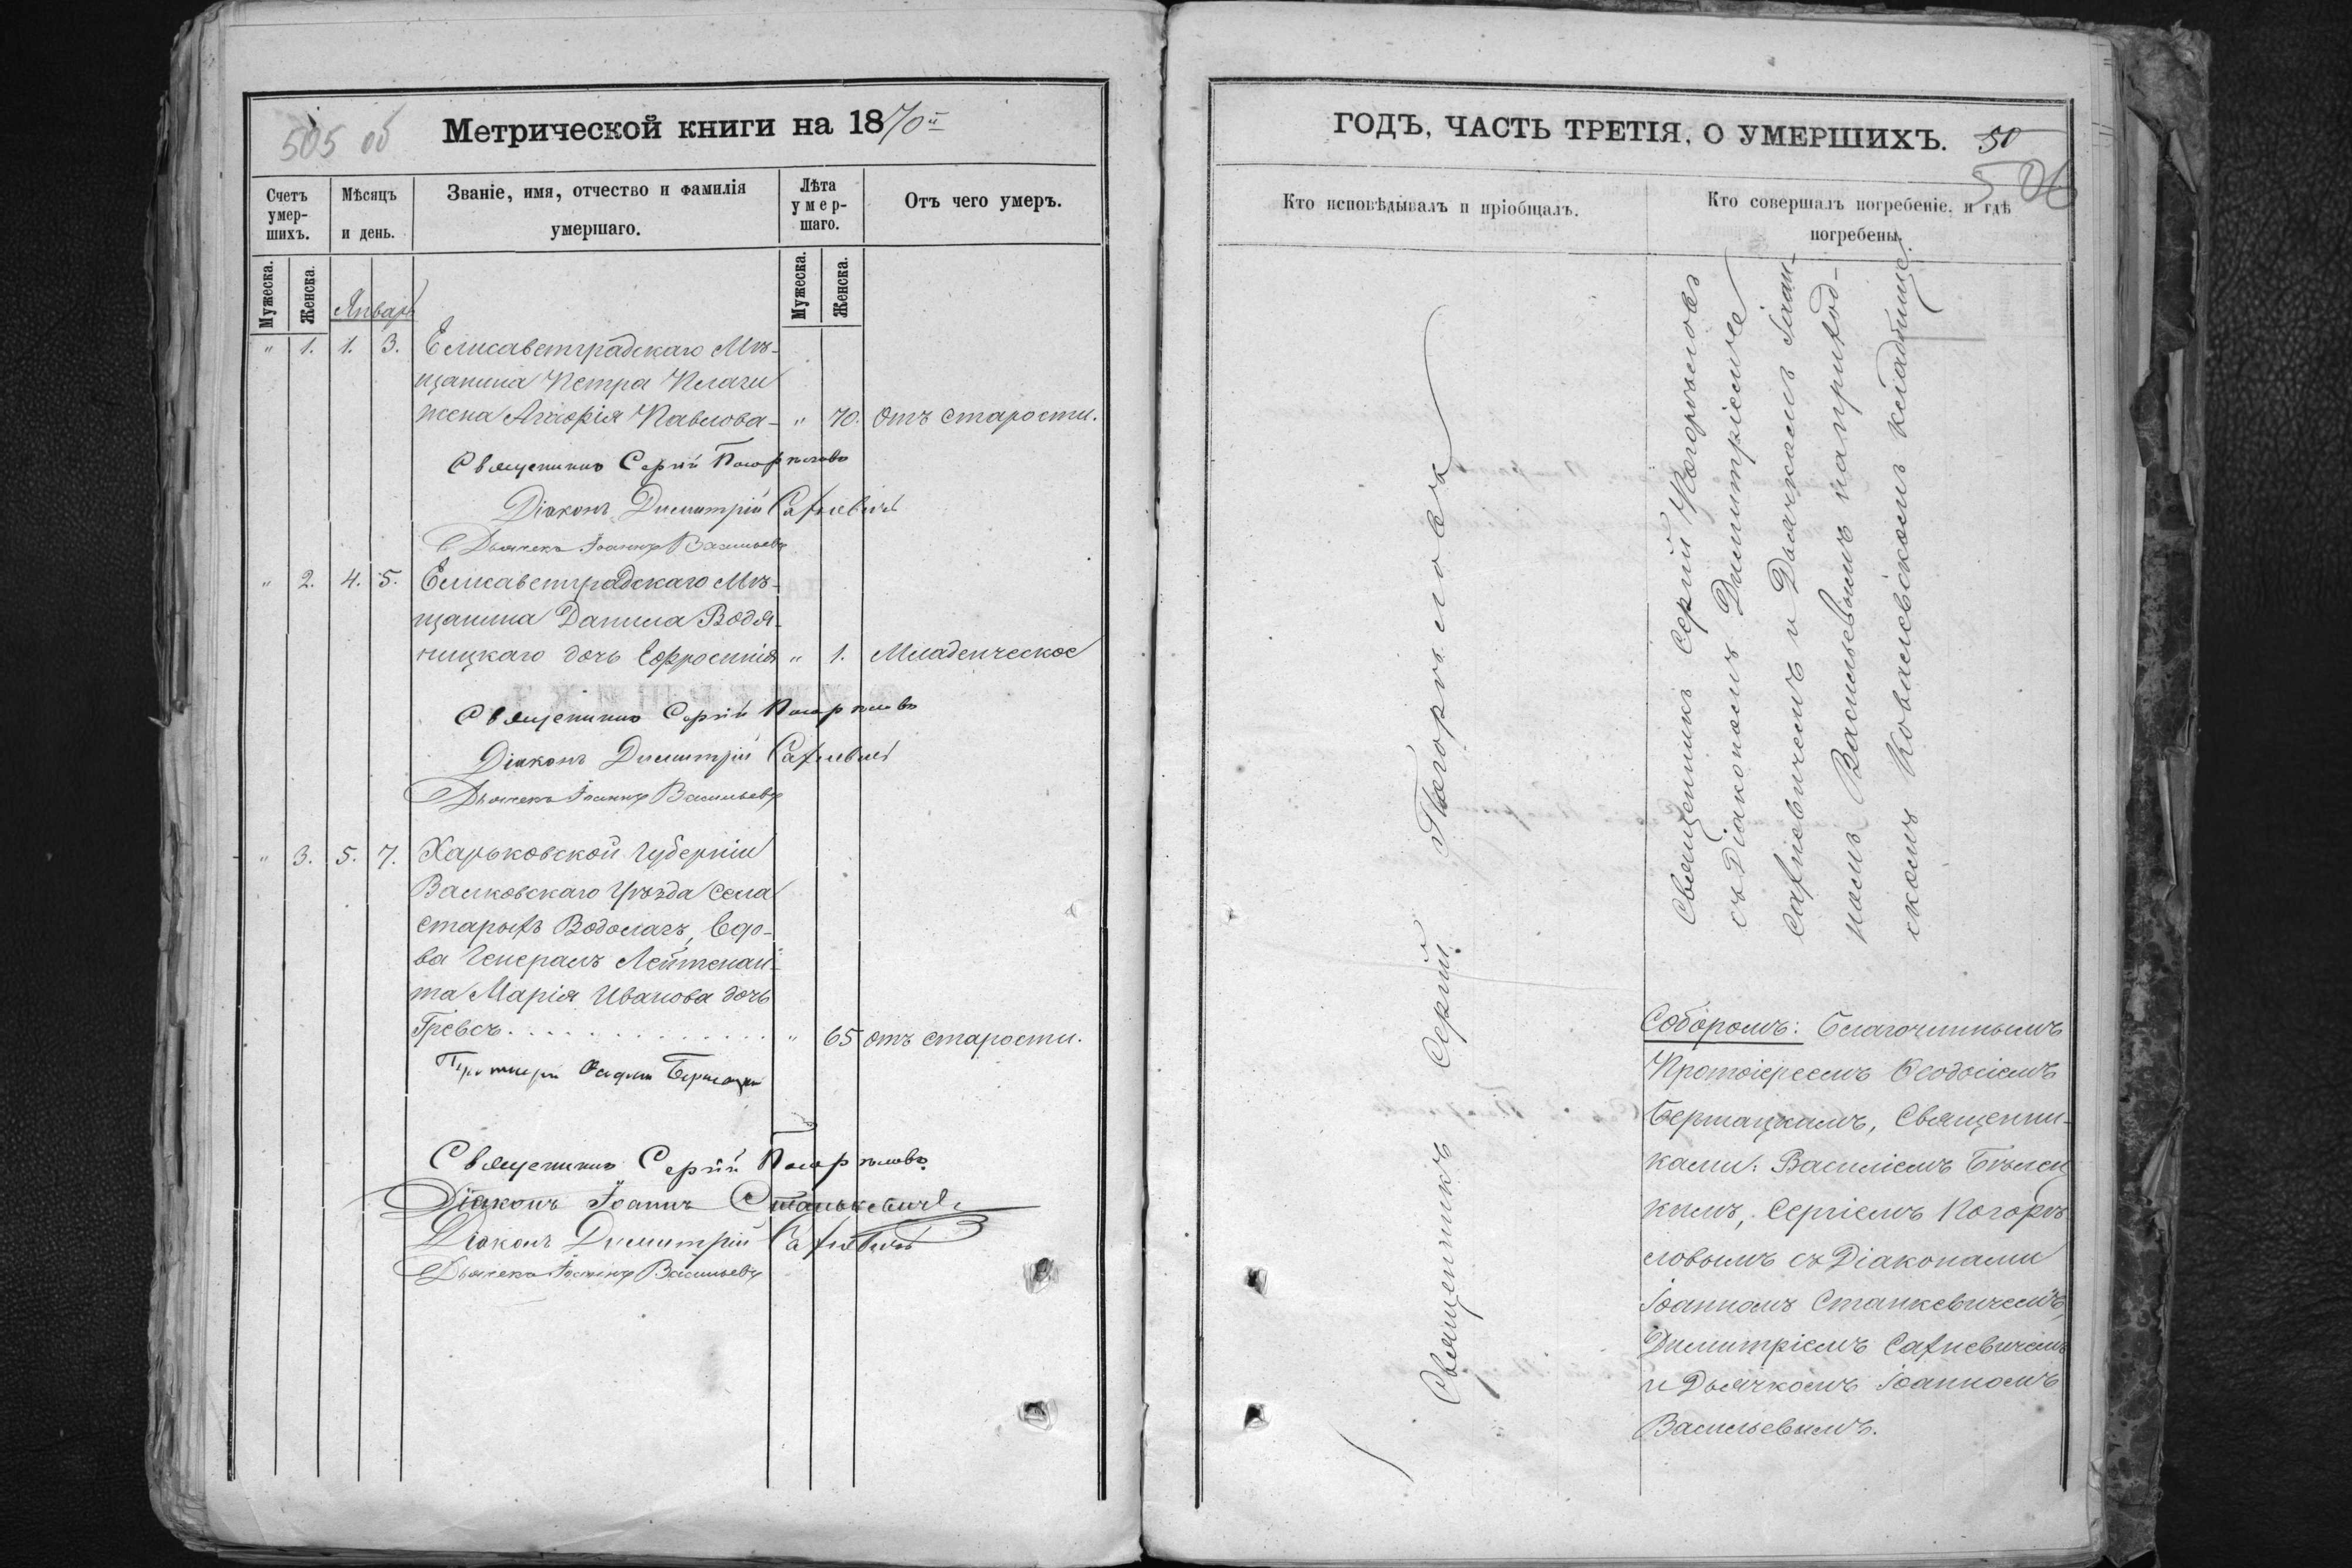 505 об
Метрической книги на 1870й
Счетъ умер-шихъ.
Мѣсяцъ и день.
Званіе, имя, отчество и фамилія умершаго.
Лѣта умер-шаго.
Отъ чего умеръ.
Мужеска.
Женска.
Январь
Мужеска.
Женска.
" 1. 1. 3. Елисаветградскаго Мѣ-
щанина Петра
жена Агафія Павлова- " 70. отъ старости.
Священникъ Сергій Погорѣловъ
Діаконъ Димитрій Сахневичъ
Дьячекъ Іоаннъ Васильевъ
" 2. 4. 5. Елисаветградскаго Мѣ-
щанина Данила Водя-
ницкаго дочь Ефросинія " 1. Младенческое
Священникъ Сергій Погорѣловъ
Діаконъ Димитрій Сахневичъ
Дьячекъ Іоаннъ Васильевъ
" 3. 5. 7. Харьковской Губерніи
Валковскаго Уѣзда Села
Старыхъ Водолагъ, Вдо-
ва Генералъ Лейтенан-
та Марія Иванова дочь
Гревсъ. . . . . . . . . . . . " 65 отъ старости.
Протоіерей
Священникъ Сергій Погорѣловъ
Діаконъ Іоаннъ Станькевичъ
Діаконъ Димитрій Сахневичъ
Дьячекъ Іоаннъ Васильевъ
ГОДЪ, ЧАСТЬ ТРЕТІЯ, О УМЕРШИХЪ.
50
506
Кто исповѣдывалъ и пріобщалъ.
Кто совершалъ погребеніе, и гдѣ
погребены.
Священникъ Сергій Погорѣловъ
Священникъ Сергій Погорѣловъ
съ Діакономъ Димитріемъ
Сахневичемъ и Дьячкомъ Іоан-
номъ Васильевымъ на приход-
скомъ Ковалевскомъ кладбище.
Соборомъ: Благочиннымъ
Протоіереемъ Ѳеодосіемъ
Бершацкимъ, Священни-
ками: Василіемъ
кимъ, Сергіемъ Погорѣ
ловымъ съ Діаконами
Іоанномъ Станкевичемъ,
Димитріемъ Сахневичемъ
и Дьячкомъ Іоанномъ
Васильевымъ.